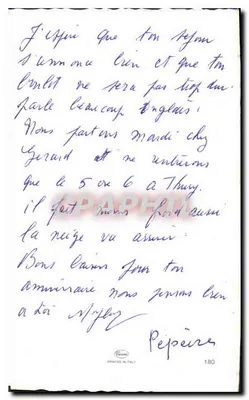 J'espère que ton séjour
s'annonce bien et que ton
boulot ne sera pas trop dur.
parle beaucoup Anglais!
Nous partons mardi chez
Gérard et ne rentrerons
que le 5 ou 6 à Thury.
il fait moins froid aussi
la neige va arriver.
Bons baisers pour ton
anniversaire nous pensons bien
à toi
Pépères
PRINTED IN ITALY
180